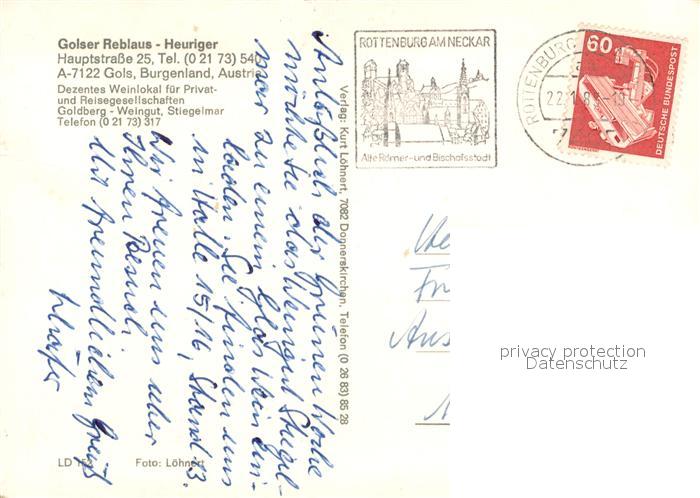 Golser Reblaus - Heuriger
Hauptstraße 25, Tel. (0 21 73) 540
A-7122 Gols, Burgenland, Austria
Dezentes Weinlokal für Privat-
und Reisegesellschaften
Goldberg - Weingut, Stiegelmar
Telefon (0 21 73) 317
Anläßlich der Grünen Woche
möchte Sie das Weingut Stiegel-
mar zu einem Glas Wein ein-
laden. Sie finden uns
in Halle 15/16, Stand 13.
Wir freuen uns über
Ihren Besuch.
Mit freundlichem Gruß
LD
Foto: Löhnert
Verlag: Kurt Löhnert, 7082 Donnerskirchen, Telefon (0 26 83) 85 28
ROTTENBURG AM NECKAR
Alte Römer- und Bischofsstadt
ROTTENBURG
22.1.8
60
DEUTSCHE BUNDESPOST
privacy protection
Datenschutz